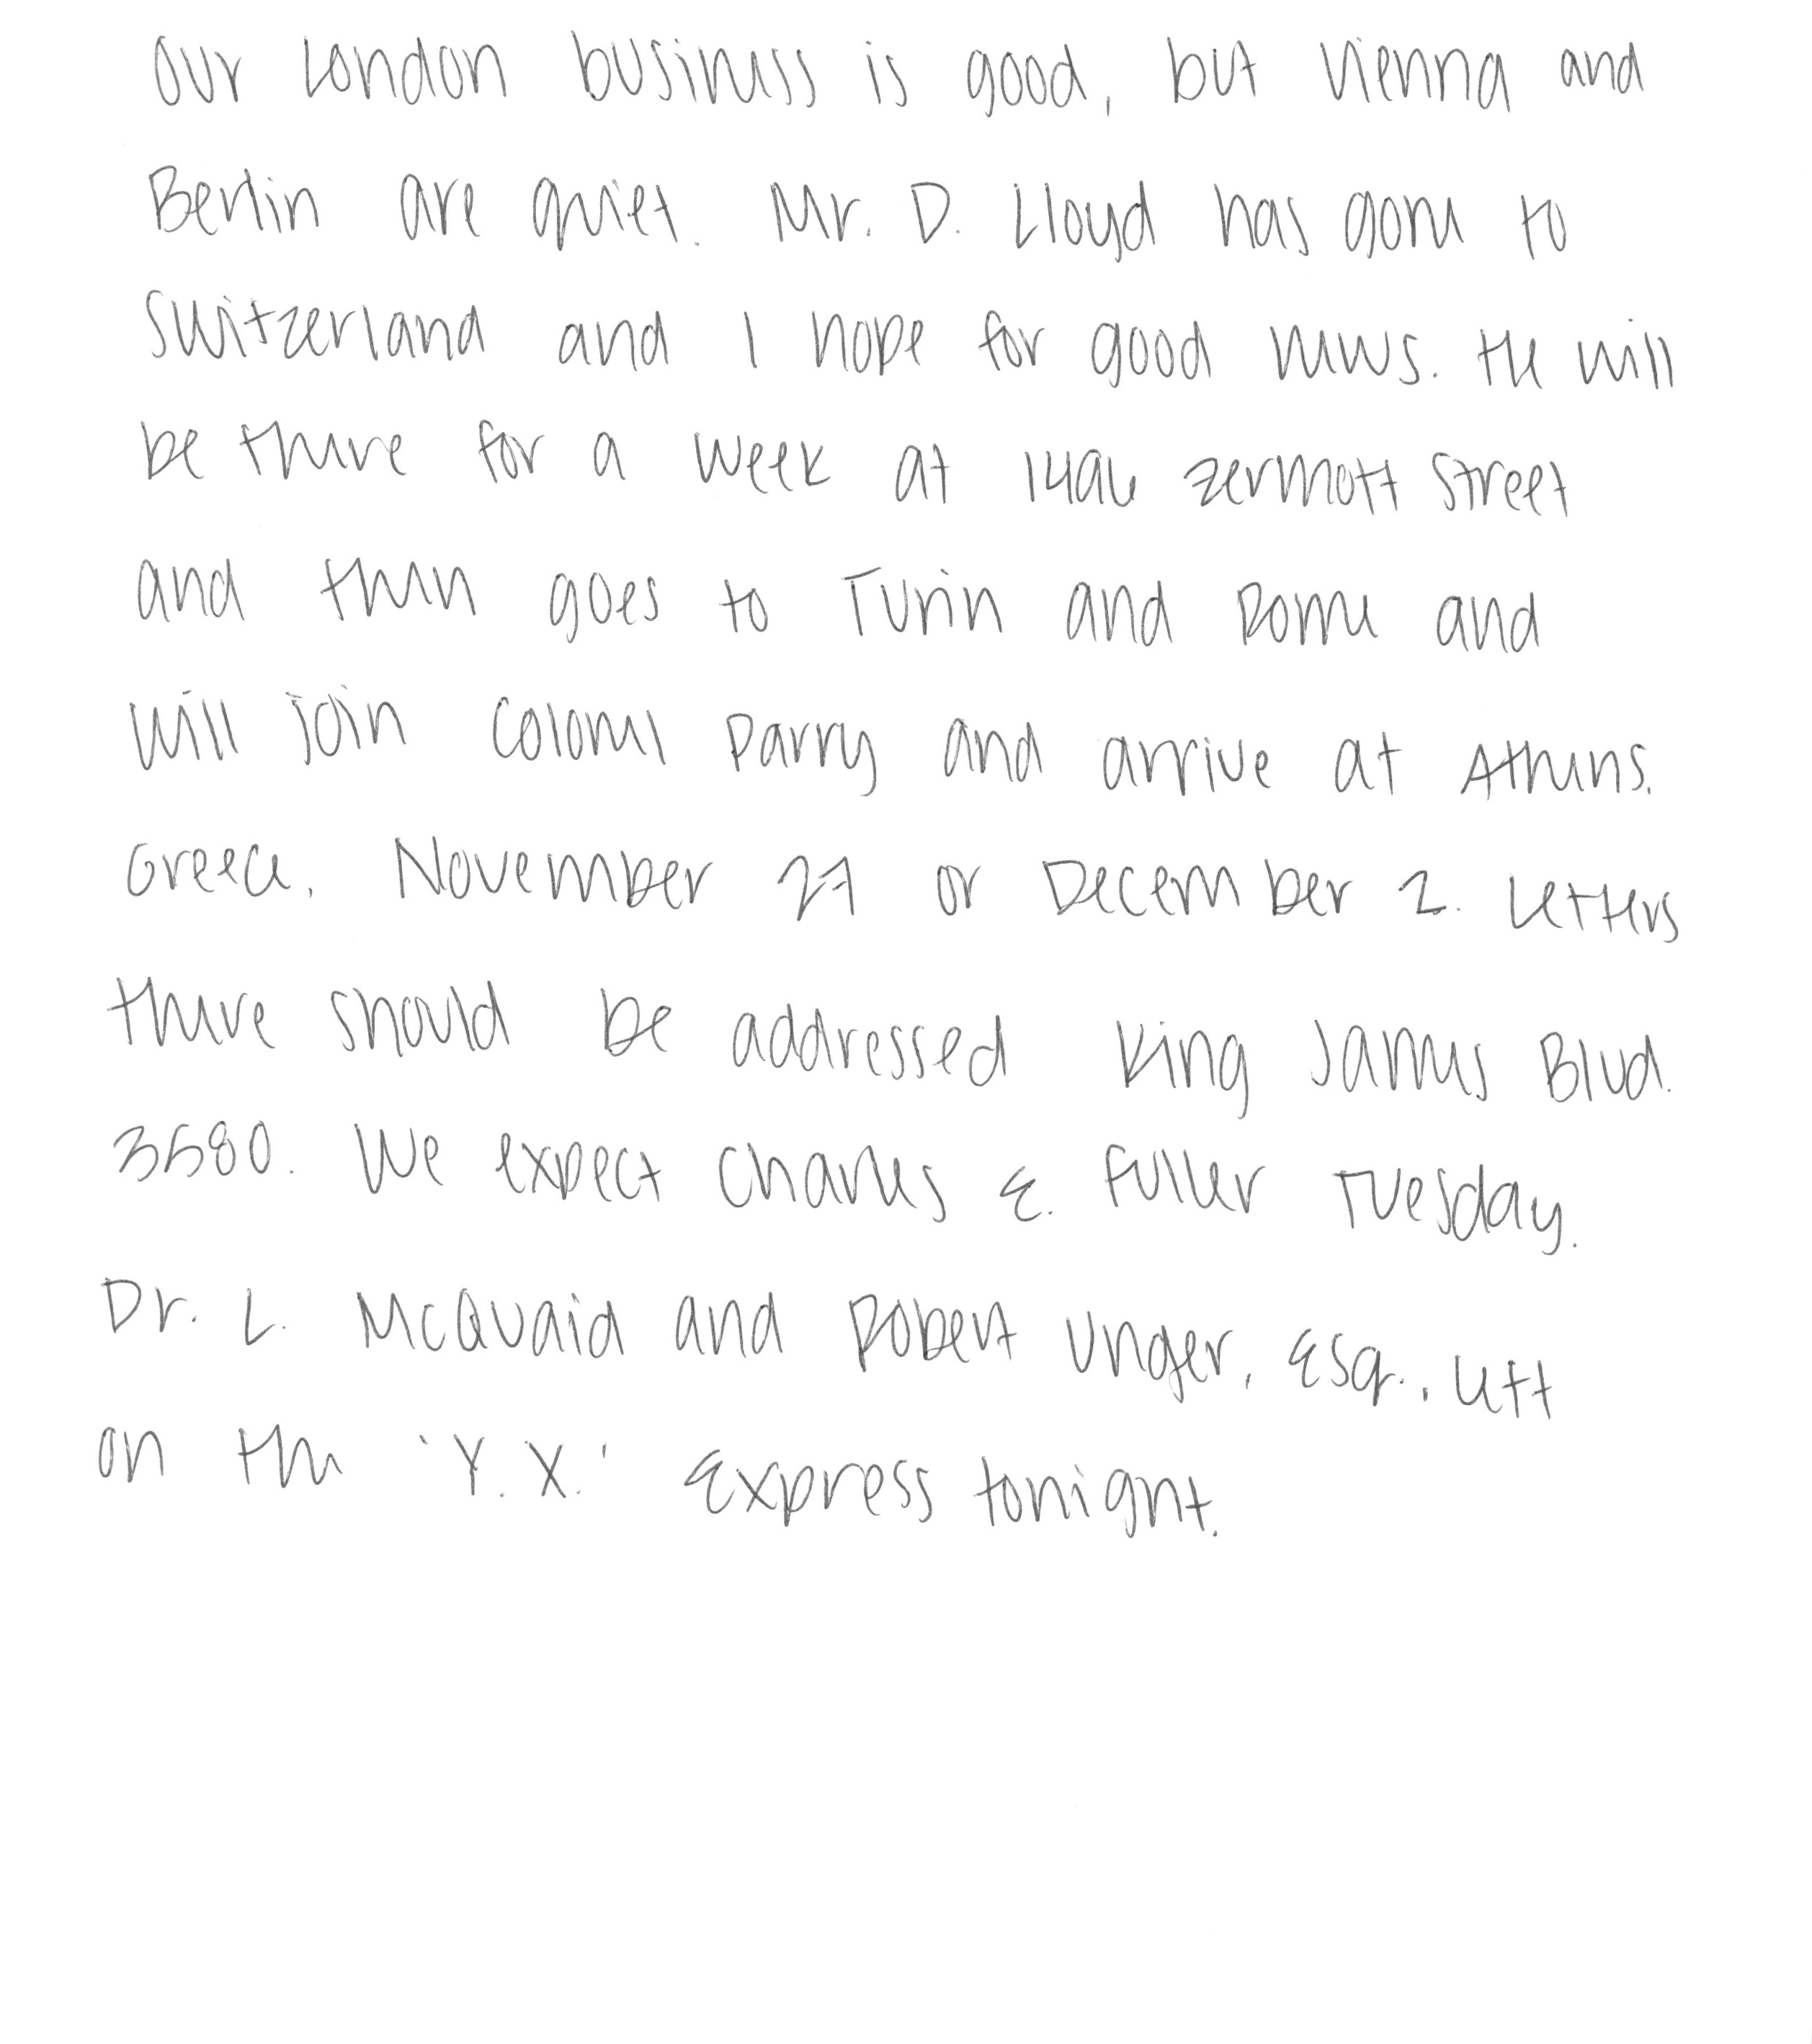 Our London business is good, but Vienna and
Berlin are quiet. Mr. D. Lloyd has gone to
Switzerland and I hope for good news. He will
be there for a week at 1496 Zermott Street
and then goes to Turin and Rome and
will join Colonel Parry and arrive at Athens,
Greece, November 27 or December 2. Letters
there should be addressed King James Blvd.
3580. We expect Charles E. Fuller Tuesday.
Dr. L. McQuaid and Robert Unger, Esq., left
on the 'Y.X.' Express tonight.